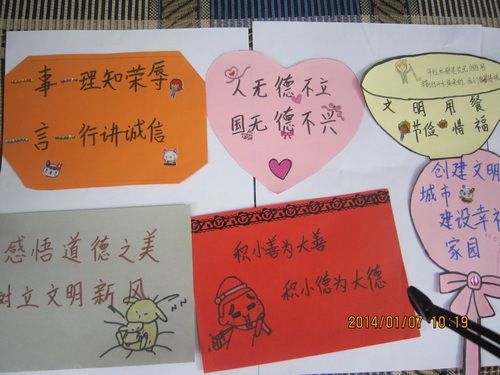 事一一理知荣辱
言一一行讲诚信
人无德不立
国无德不兴
文明用餐
节俭惜福
创建文明
城市
建设幸福
家园
感悟道德之美
树立文明新风
积小善为大善
积小德为大德
2014/01/07 10:19